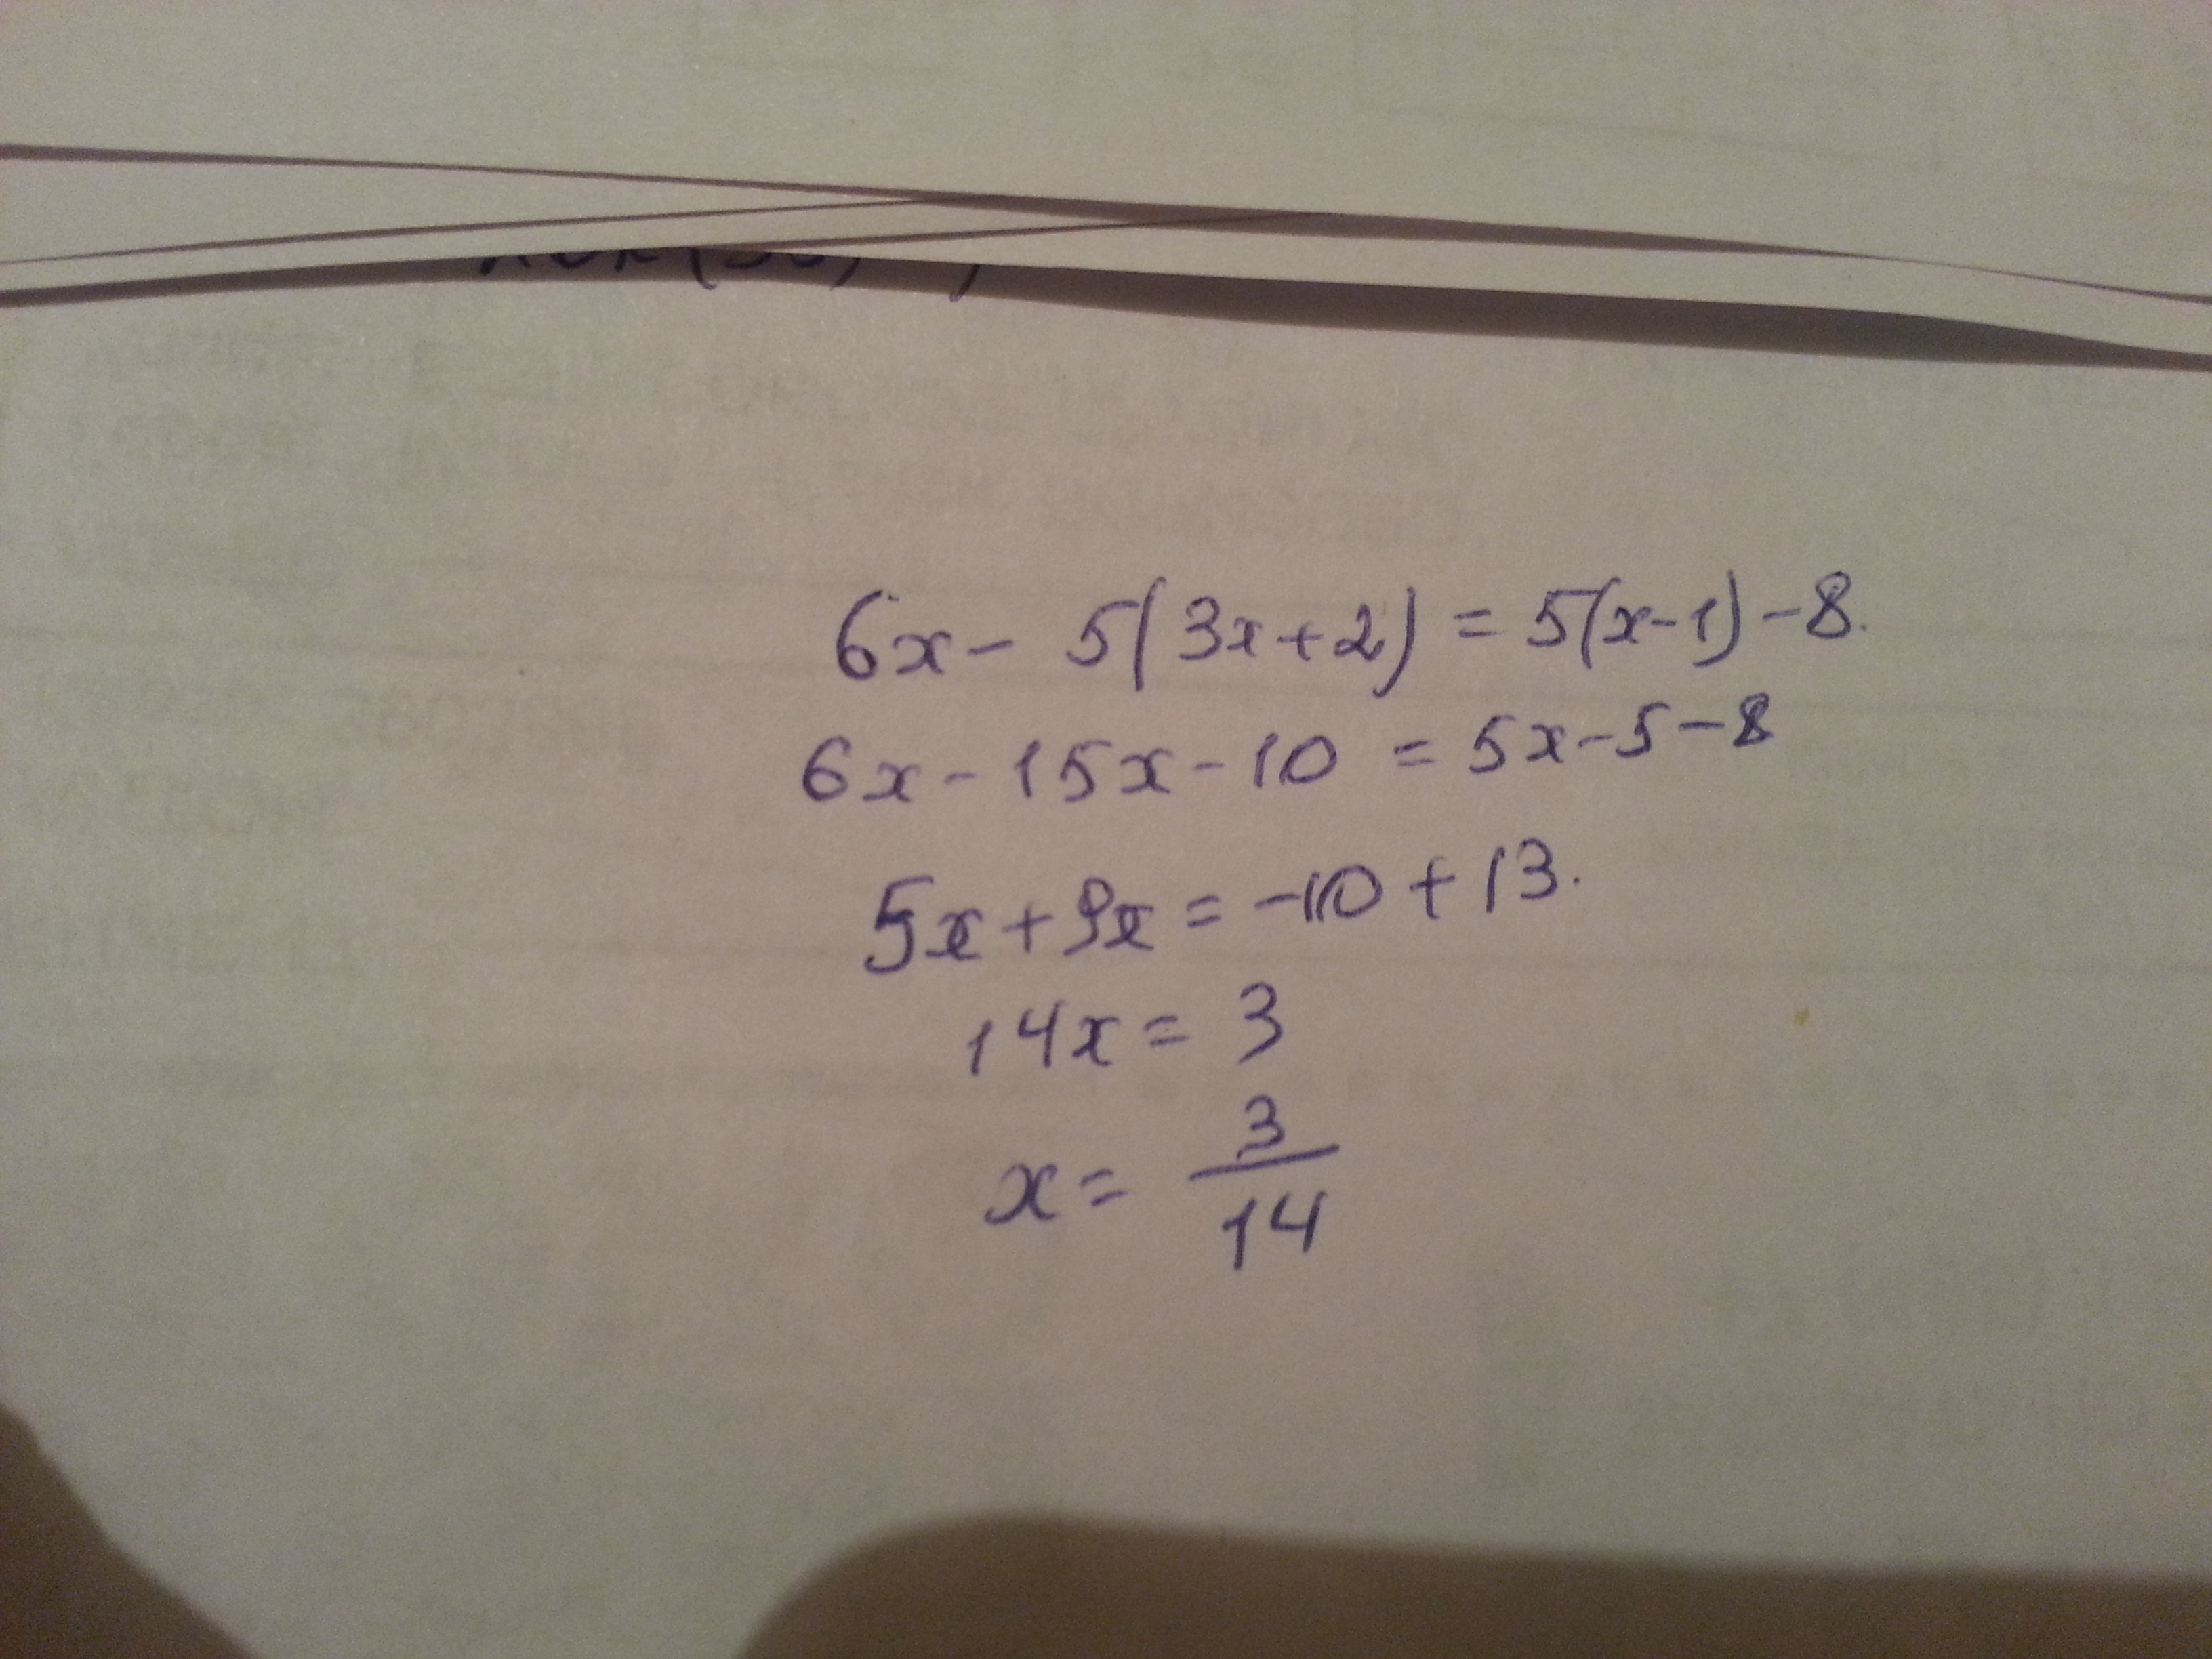 6x - 5(3x+2) = 5(x-1) - 8.
6x - 15x - 10 = 5x - 5 - 8
5x + 9x = -10 + 13.
14x = 3
x = 3/14